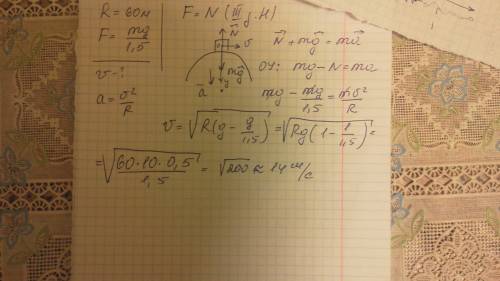 R = 60м
F = mg/1,5
v - ?
a = v²/R
F = N (III з. Н)
N⃗
v⃗
mg⃗
y
a⃗
N⃗ + mg⃗ = ma⃗
OY: mg - N = ma
mg - mg/1,5 = mv²/R
v = √(R(g - g/1,5)) = √(Rg(1 - 1/1,5)) =
= √(60·10·0,5/1,5) = √200 ≈ 14 м/с